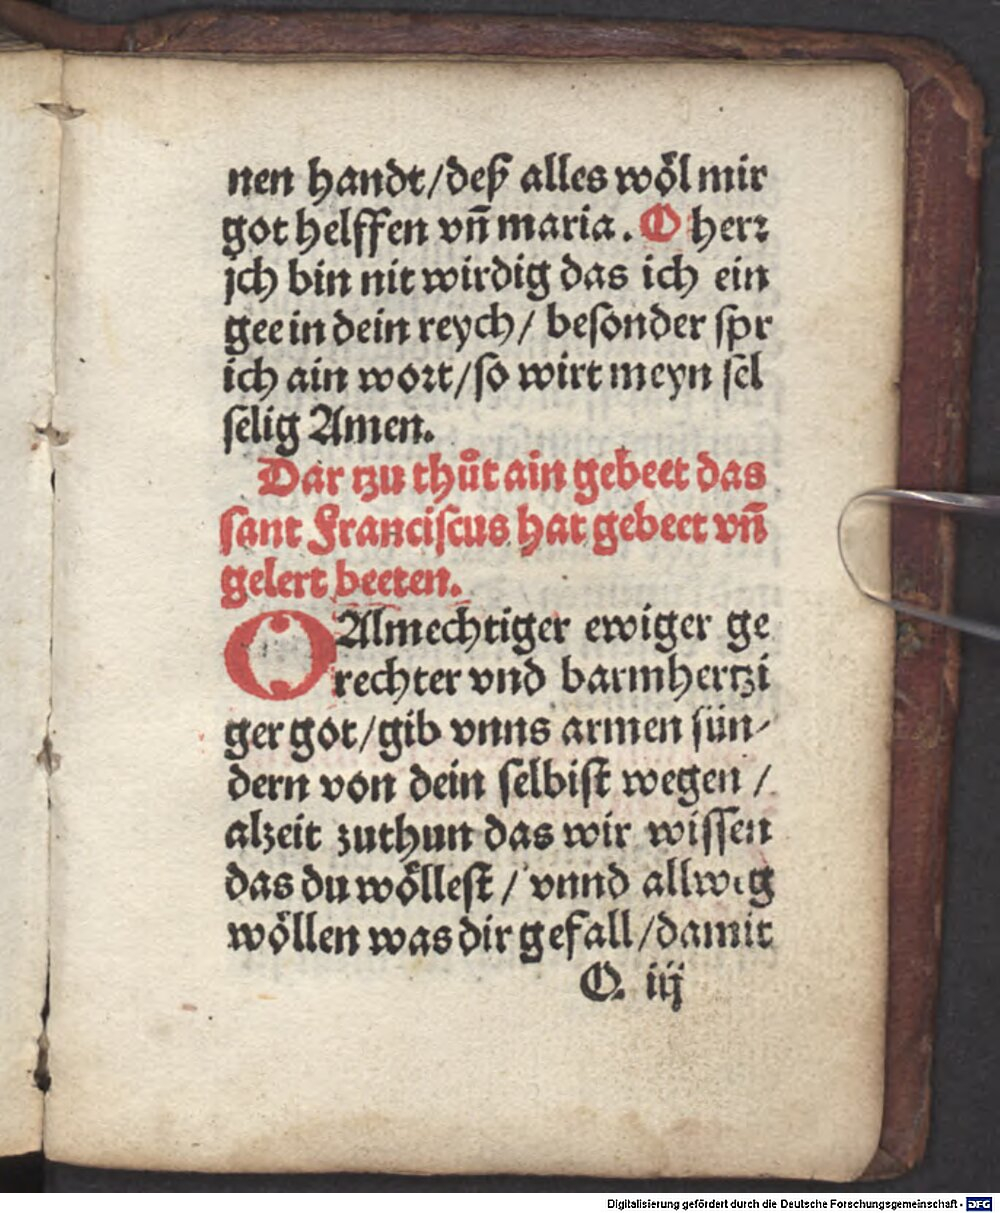 nen handt/deß alles wöl mir
got helffen vñ maria. O herꝛ
jch bin nit wirdig das ich ein
gee in dein reych/ beſonder ſpr
ich ain woꝛt/ſo wirt meyn ſel
ſelig Amen.
Dar tzu thůt ain gebeet das
ſant Franciſcus hat gebeet vñ
gelert beeten.
O Almechtiger ewiger ge
rechter vnd barmhertzi
ger got/gib vnns armen ſün-
dern von dein ſelbiſt wegen /
alzeit zuthun das wir wiſſen
das du wölleſt / vnnd allweg
wöllen was dir gefall/damit
O. iij
Digitalisierung gefördert durch die Deutsche Forschungsgemeinschaft - DFG